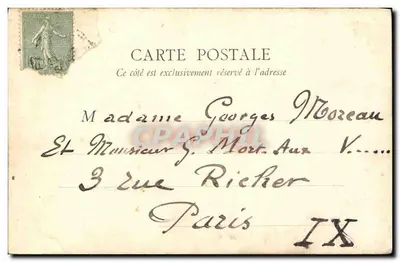 CARTE POSTALE
Ce côté est exclusivement réservé à l'adresse
Madame Georges Moreau
Et Monsieur G. Mort Aux V......
3 rue Richer
Paris
IX